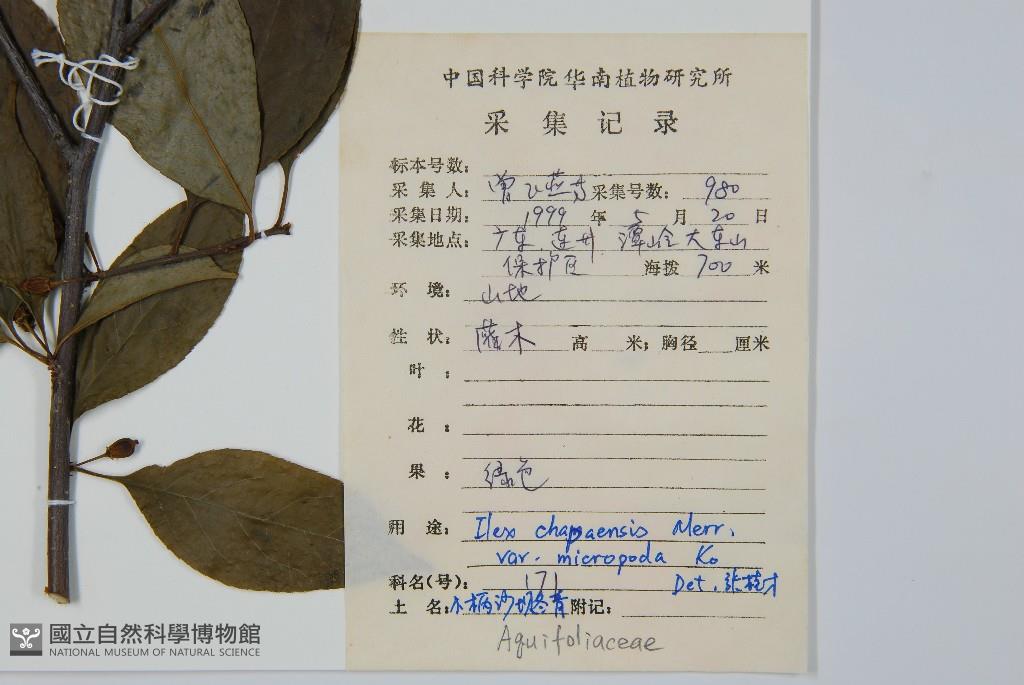 中国科学院华南植物研究所
采集记录
标本号数:
采集人: 曾飞燕等 采集号数: 980
采集日期: 1999 年 5 月 20 日
采集地点: 广东.连州 潭岭大东山
保护区 海拨 700 米
环境: 山地
性状: 灌木 高 米; 胸径 厘米
叶:
花:
果: 绿色
用途: Ilex chapaensis Merr.
var. micropoda Ko
科名(号): 171 Det. 张桂才
土名: 小柄沙坝冬青 附记:
Aquifoliaceae
國立自然科學博物館
NATIONAL MUSEUM OF NATURAL SCIENCE